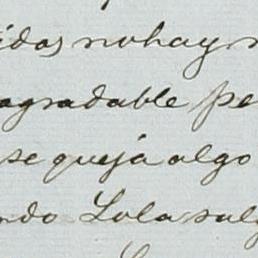 idas no hay n
agradable pe
se queja algo
ndo Lola salg